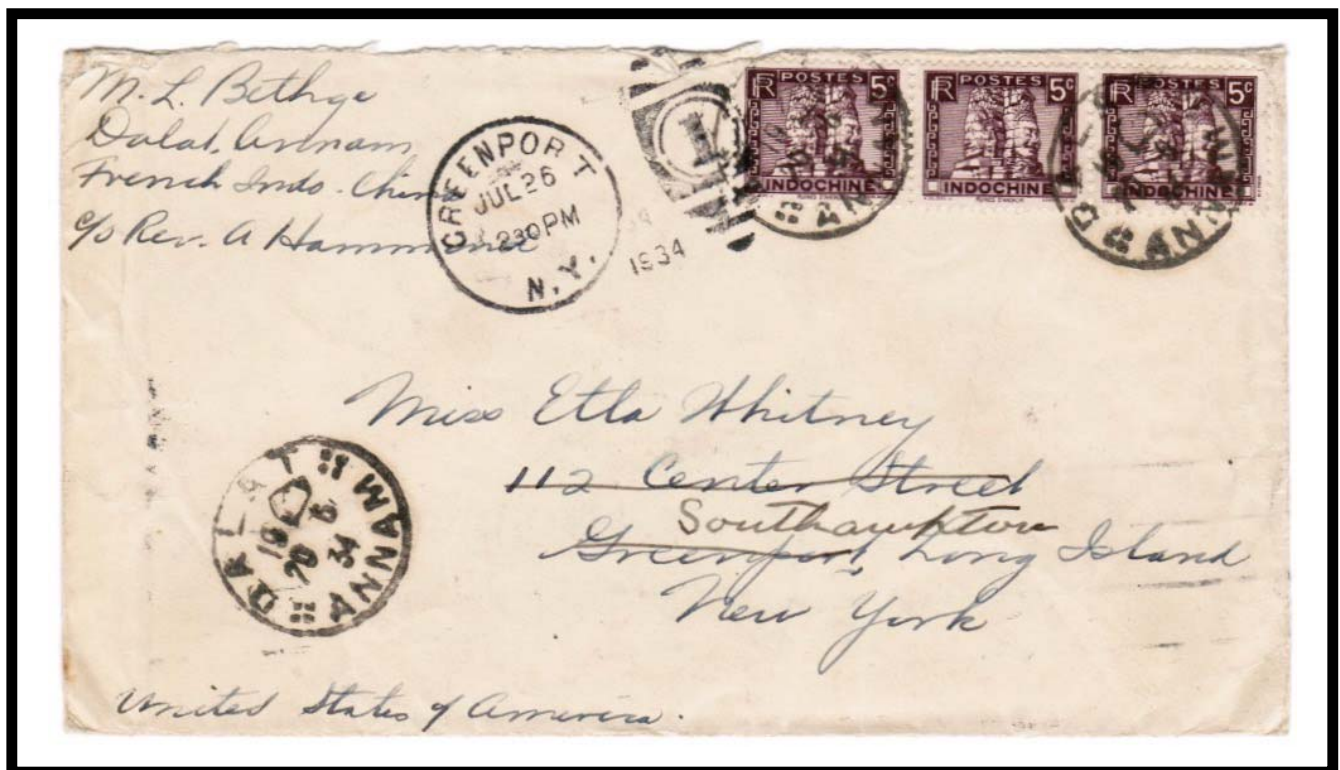 M. L. Bethge
Dalat, Annam
French Indo-China
c/o Rev. A Hammond
GREENPORT
JUL 26
230 PM
N.Y.
1934
1
RF POSTES 5c
INDOCHINE
RF POSTES 5c
INDOCHINE
RF POSTES 5c
INDOCHINE
ANNAM
ANNAM
Miss Etta Whitney
112 Center Street
Southampton
Greenport, Long Island
New York
DALAT ANNAM
20 6
34
United States of America.